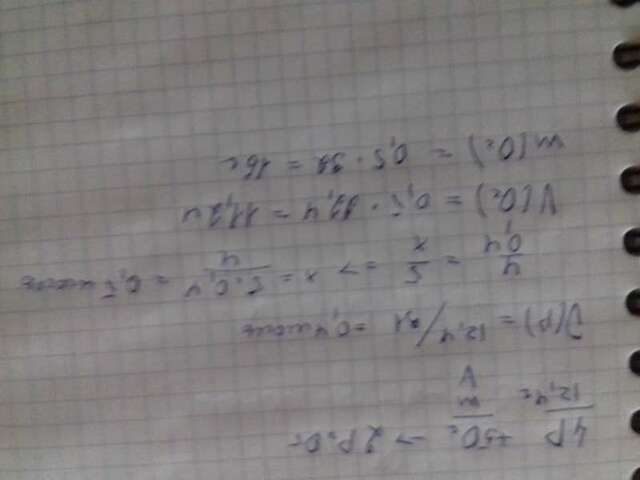 4P + 5O₂ → 2P₂O₅
12,4г m
V
ν(P) = 12,4/31 = 0,4 моль
4/0,4 = 5/x => x = 5·0,4/4 = 0,5 моль
V(O₂) = 0,5 · 22,4 = 11,2 л
m(O₂) = 0,5 · 32 = 16 г